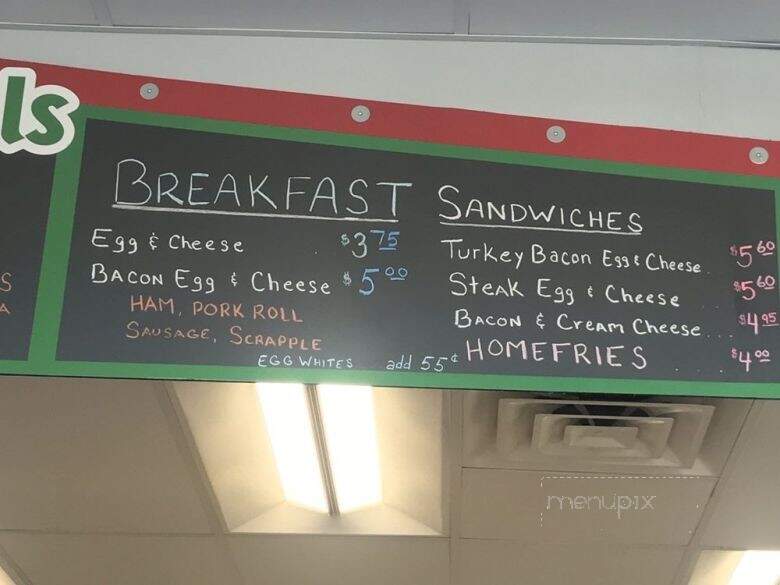 ls
S
A
BREAKFAST SANDWICHES
Egg & Cheese $3.75
BACON Egg & Cheese $5.00
HAM, PORK ROLL
SAUSAGE, SCRAPPLE
EGG WHITES add 55¢
Turkey Bacon Egg & Cheese $5.60
Steak Egg & Cheese $5.60
BACON & Cream Cheese... $4.95
HOMEFRIES $4.00
menupix